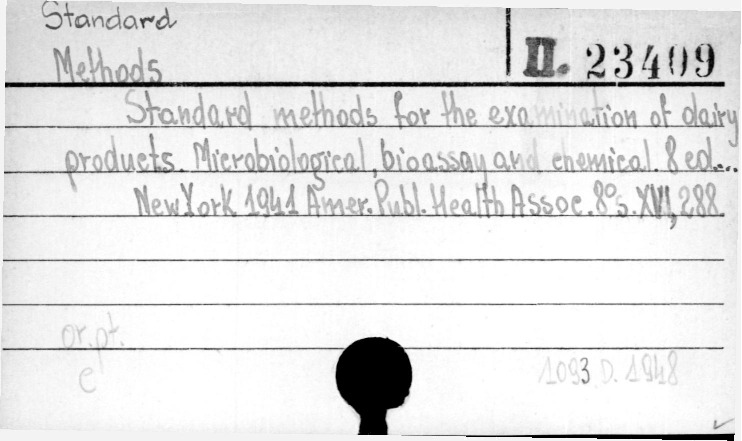 Standard
Methods
II. 23409
Standard methods for the examination of dairy
products. Microbiological, bioassay and chemical. 8 ed....
New York 1941 Amer. Publ. Health Assoc. 8°s. XVI, 288.
or. pt.
e
1093 D. 1948